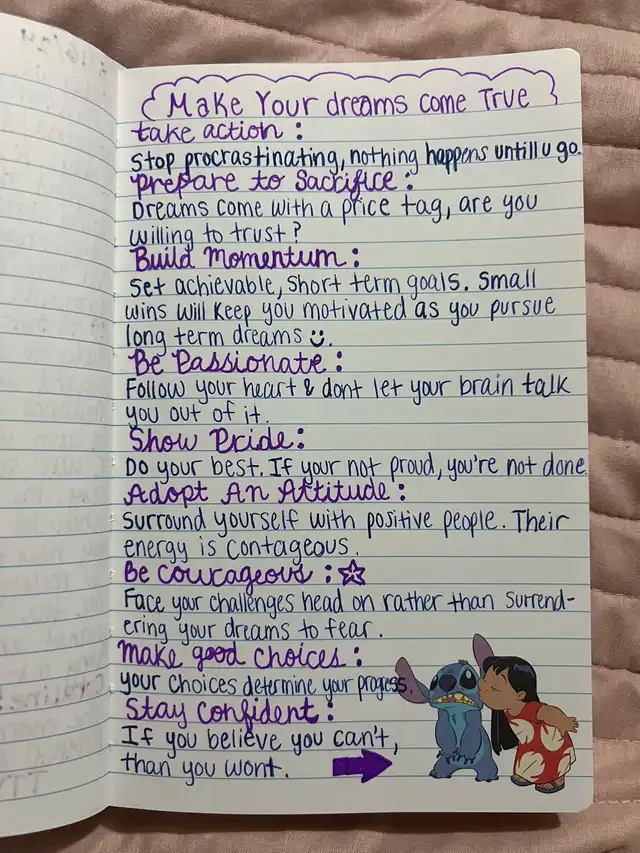 Make Your dreams come True
take action :
Stop procrastinating, nothing happens untill u go.
Prepare to Sacrifice :
Dreams come with a price tag, are you
willing to trust?
Build Momentum :
Set achievable, short term goals. Small
wins will keep you motivated as you pursue
long term dreams
Be Passionate :
Follow your heart & dont let your brain talk
you out of it.
Show Pride :
Do your best. If your not proud, you're not done.
Adopt An Attitude :
Surround yourself with positive people. Their
energy is contageous.
Be Courageous :
Face your challenges head on rather than surrend-
ering your dreams to fear.
Make good choices :
your choices determine your progess.
Stay Confident :
If you believe you can't,
than you wont.